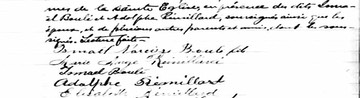 mes de la Sainte Eglise, en présence du dits Isma-
el Boulé et Adolphe Rémillard, soussignés ainsi que les
époux, et de plusieurs autres parents et amis, dont les sous-
signés. Lecture faite.
Ismael Narcisse Boulé fils
Marie Rémillard
Ismael Boulé
Adolphe Rémillard
Elisabeth Rémillard